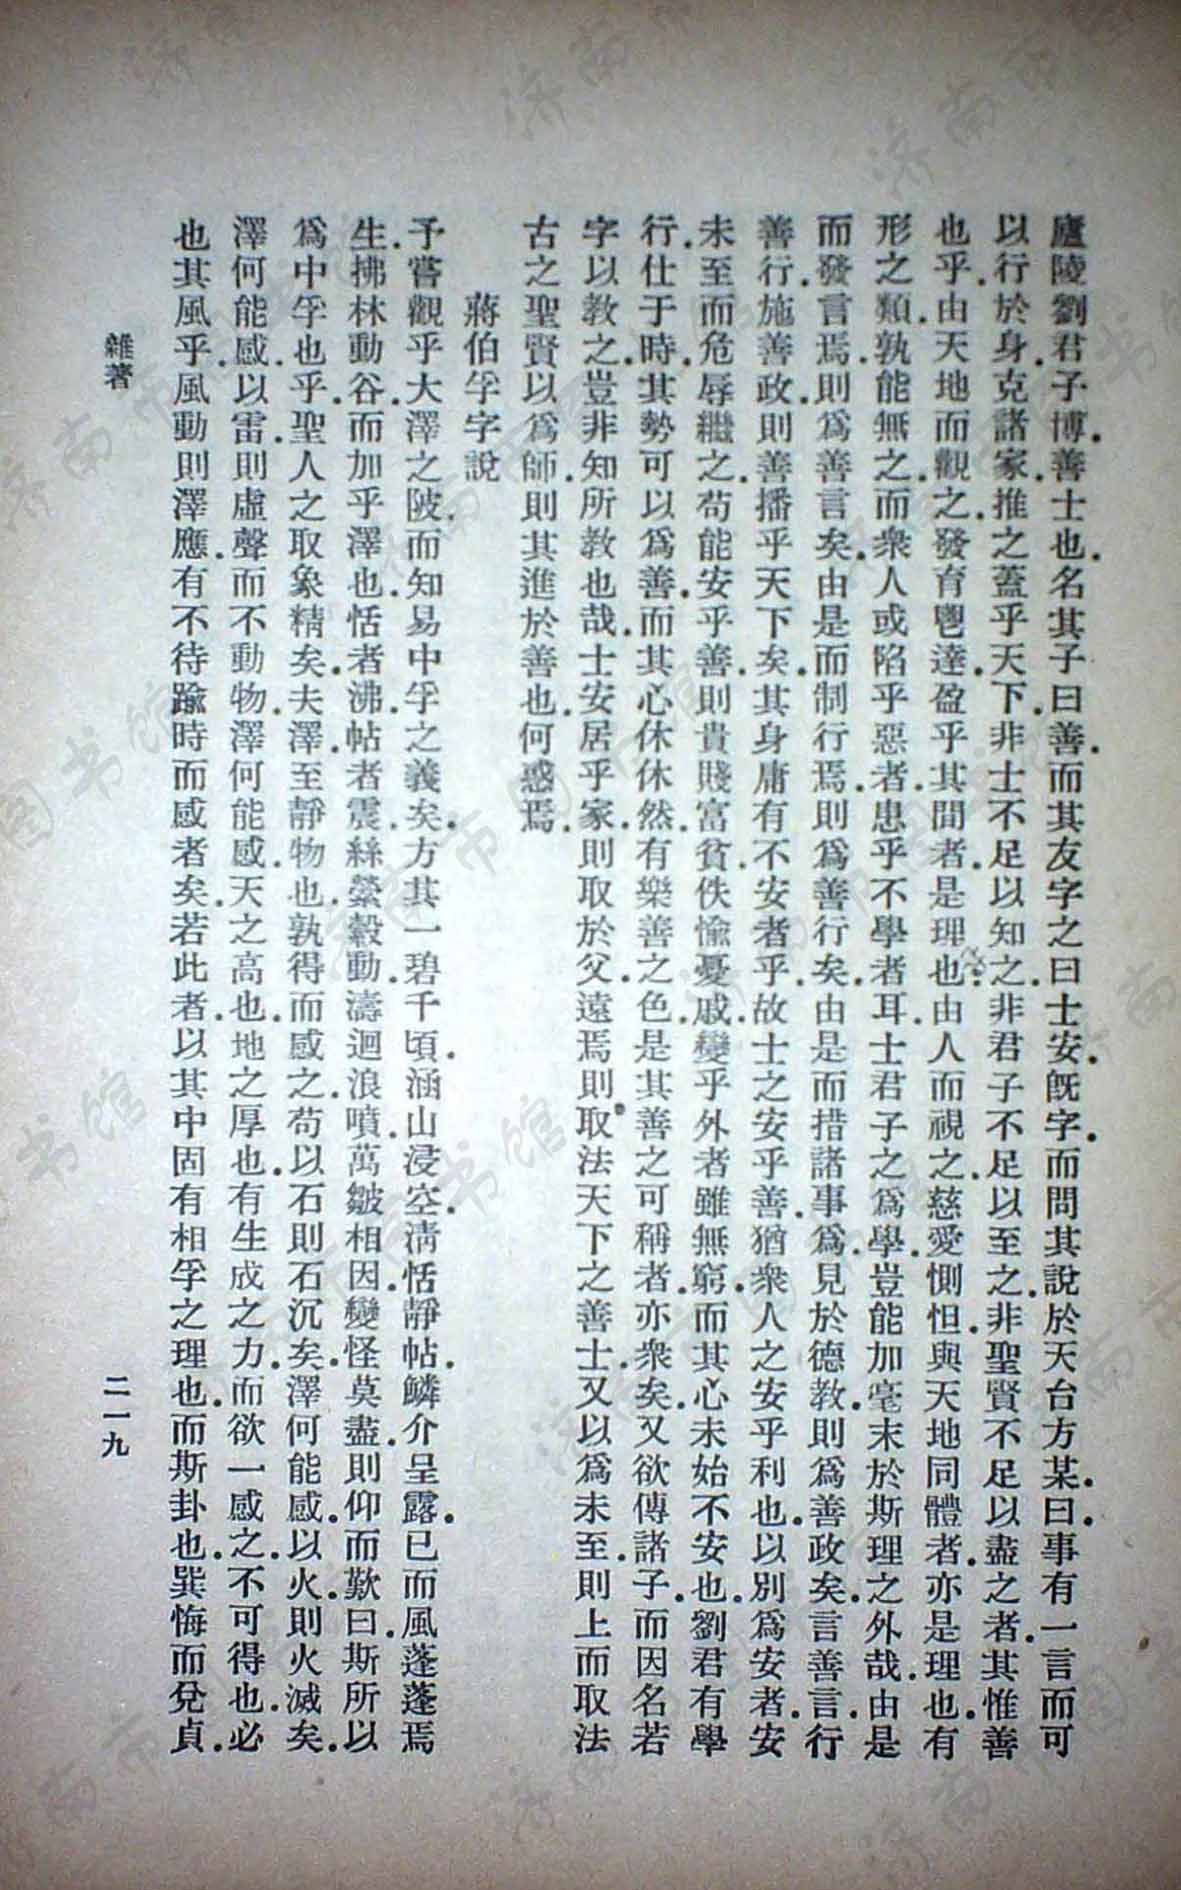 廬陵劉君子博.善士也.名其子曰善.而其友字之曰士安.旣字.而問其說於天台方某.曰.事有一言而可
以行於身.克諸家.推之蓋乎天下.非士不足以知之.非君子不足以至之.非聖賢不足以盡之者.其惟善
也乎.由天地而觀之.發育鬯達.盈乎其間者.是理也.由人而視之.慈愛惻怛.與天地同體者.亦是理也.有
形之類.孰能無之.而衆人或陷乎惡者.患乎不學者耳.士君子之爲學.豈能加毫末於斯理之外哉.由是
而發言焉.則爲善言矣.由是而制行焉.則爲善行矣.由是而措諸事爲.見於德教.則爲善政矣.言善言.行
善行.施善政.則善播乎天下矣.其身庸有不安者乎.故士之安乎善.猶衆人之安乎利也.以別爲安者.安
未至而危辱繼之.苟能安乎善.則貴賤富貧.佚愉憂戚.變乎外者雖無窮.而其心未始不安也.劉君有學
行.仕于時.其勢可以爲善.而其心休休然.有樂善之色.是其善之可稱者.亦衆矣.又欲傳諸子.而因名若
字以教之.豈非知所教也哉.士安居乎家.則取於父.遠焉則取法天下之善士.又以爲未至.則上而取法
古之聖賢以爲師.則其進於善也.何惑焉.
蔣伯孚字說
予嘗觀乎大澤之陂.而知易中孚之義矣.方其一碧千頃.涵山浸空.淸恬靜帖.鱗介呈露.已而風蓬蓬焉
生.拂林動谷.而加乎澤也.恬者沸.帖者震.絲縈縠動.濤迴浪噴.萬皺相因.變怪莫盡.則仰而歎曰.斯所以
爲中孚也乎.聖人之取象精矣.夫澤.至靜物也.孰得而感之.苟以石則石沉矣.澤何能感.以火則火滅矣.
澤何能感.以雷.則虛聲而不動物.澤何能感.天之高也.地之厚也.有生成之力.而欲一感之.不可得也.必
也其風乎.風動則澤應.有不待踰時而感者矣.若此者.以其中固有相孚之理也.而斯卦也.巽悔而兌貞.
雜著
二一九